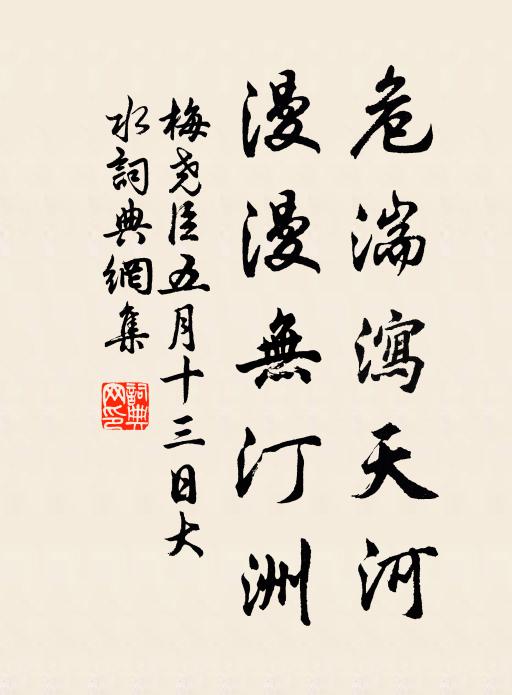 危湍瀉天河
漫漫無汀洲
梅堯臣五月十三日大
水詞典網集
詞典
网印